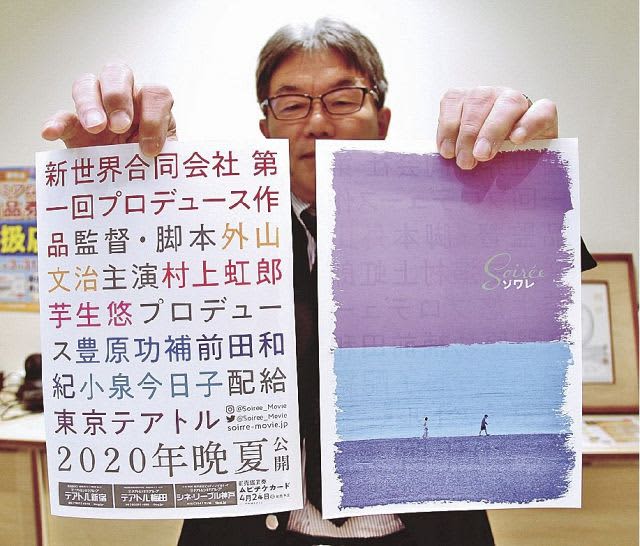 新世界合同会社 第
一回プロデュース作
品監督・脚本外山
文治主演村上虹郎
芋生悠プロデュー
ス豊原功補前田和
紀小泉今日子配給
東京テアトル
@Soiree_Movie
@Soiree_Movie
soiree-movie.jp
2020年晩夏公開
テアトル新宿
テアトル梅田
シネ・リーブル神戸
ムビチケカード
4月24日
Soirée
ソワレ